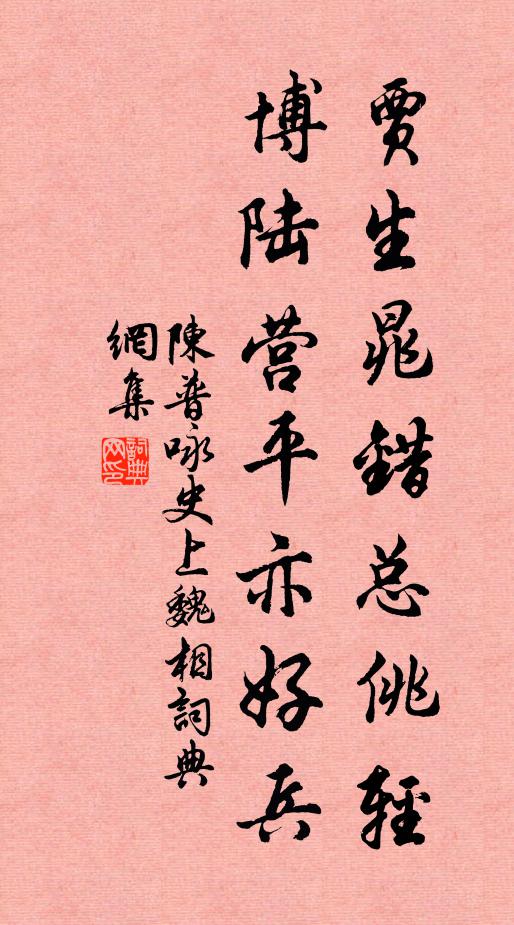 贾生晁錯总佻輕
博陆营平亦好兵
陳普咏史上魏相詞典
網集
詞典
网印